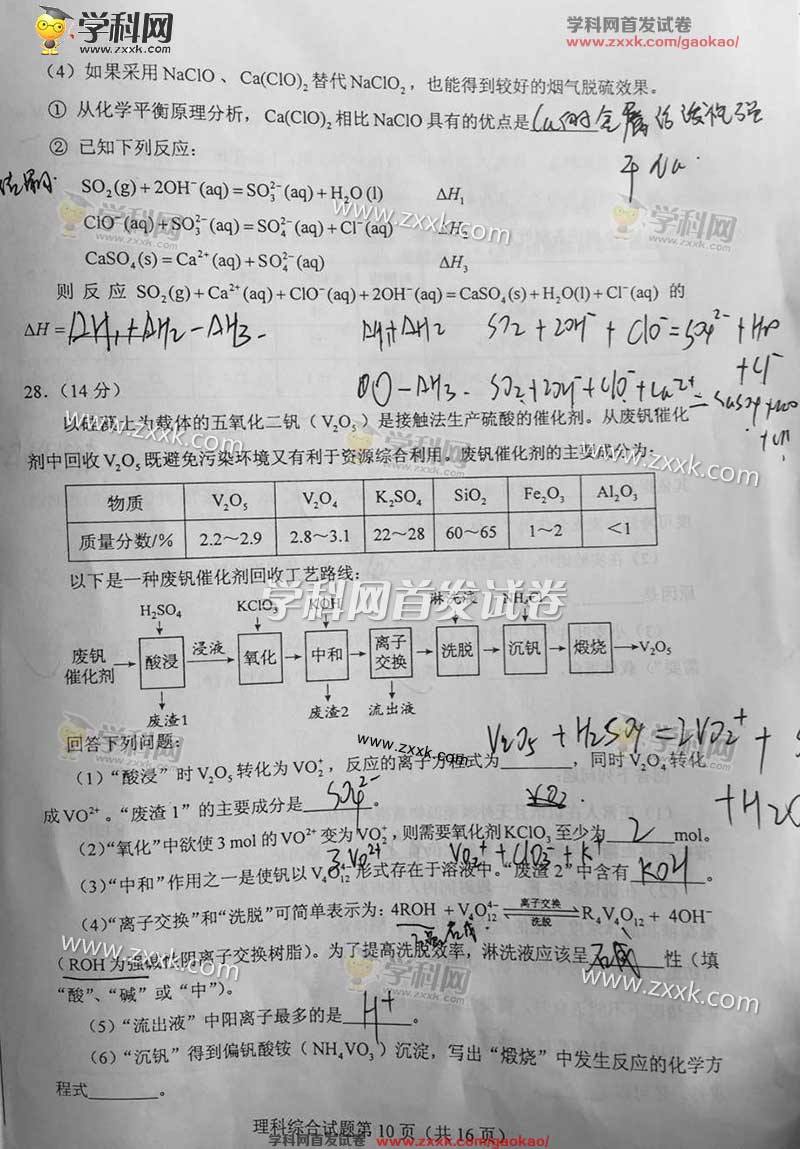 学科网
www.zxxk.com
学科网首发试卷
www.zxxk.com/gaokao/
（4）如果采用NaClO、Ca(ClO)₂替代NaClO₂，也能得到较好的烟气脱硫效果。
① 从化学平衡原理分析，Ca(ClO)₂相比NaClO具有的优点是 金属活泼性强
于Na.
② 已知下列反应：
SO₂(g)+2OH⁻(aq)=SO₃²⁻(aq)+H₂O(l) ΔH₁
ClO⁻(aq)+SO₃²⁻(aq)=SO₄²⁻(aq)+Cl⁻(aq) ΔH₂
CaSO₄(s)=Ca²⁺(aq)+SO₄²⁻(aq) ΔH₃
则反应 SO₂(g)+Ca²⁺(aq)+ClO⁻(aq)+2OH⁻(aq)=CaSO₄(s)+H₂O(l)+Cl⁻(aq) 的
ΔH=ΔH₁+ΔH₂-ΔH₃. ΔH₁+ΔH₂ SO₂+2OH⁻+ClO⁻=SO₄²⁻+H₂O
+Cl⁻
-ΔH₃. SO₂+2OH⁻+ClO⁻+Ca²⁺
28.（14分）
以硅藻土为载体的五氧化二钒（V₂O₅）是接触法生产硫酸的催化剂。从废钒催化
剂中回收V₂O₅既避免污染环境又有利于资源综合利用。废钒催化剂的主要成分为：
物质 V₂O₅ V₂O₄ K₂SO₄ SiO₂ Fe₂O₃ Al₂O₃
质量分数/% 2.2～2.9 2.8～3.1 22～28 60～65 1～2 <1
以下是一种废钒催化剂回收工艺路线：
学科网首发试卷
H₂SO₄ KClO₃ KOH 淋洗液 NH₄Cl
废钒催化剂 酸浸 浸液 氧化 中和 离子交换 洗脱 沉钒 煅烧 V₂O₅
废渣1 废渣2 流出液
回答下列问题：
V₂O₅+H₂SO₄=2VO₂⁺+
+H₂O
（1）“酸浸”时V₂O₅转化为VO₂⁺，反应的离子方程式为________，同时V₂O₄转化
成VO²⁺。“废渣1”的主要成分是 SO₄²⁻ 。
（2）“氧化”中欲使3 mol的VO²⁺变为VO₂⁺,则需要氧化剂KClO₃至少为 2 mol。
3VO²⁺ VO₂⁺+ClO₃⁻+K⁺
（3）“中和”作用之一是使钒以V₄O₁₂⁴⁻形式存在于溶液中。“废渣2”中含有 KOH 。
（4）“离子交换”和“洗脱”可简单表示为：4ROH+V₄O₁₂⁴⁻ ⇌(离子交换/洗脱) R₄V₄O₁₂+4OH⁻
（ROH为强碱性阴离子交换树脂）。为了提高洗脱效率，淋洗液应该呈 碱 性（填
“酸”、“碱”或“中”）。
（5）“流出液”中阳离子最多的是 H⁺ 。
（6）“沉钒”得到偏钒酸铵（NH₄VO₃）沉淀，写出“煅烧”中发生反应的化学方
程式________。
理科综合试题第10页（共16页）
学科网首发试卷 www.zxxk.com/gaokao/